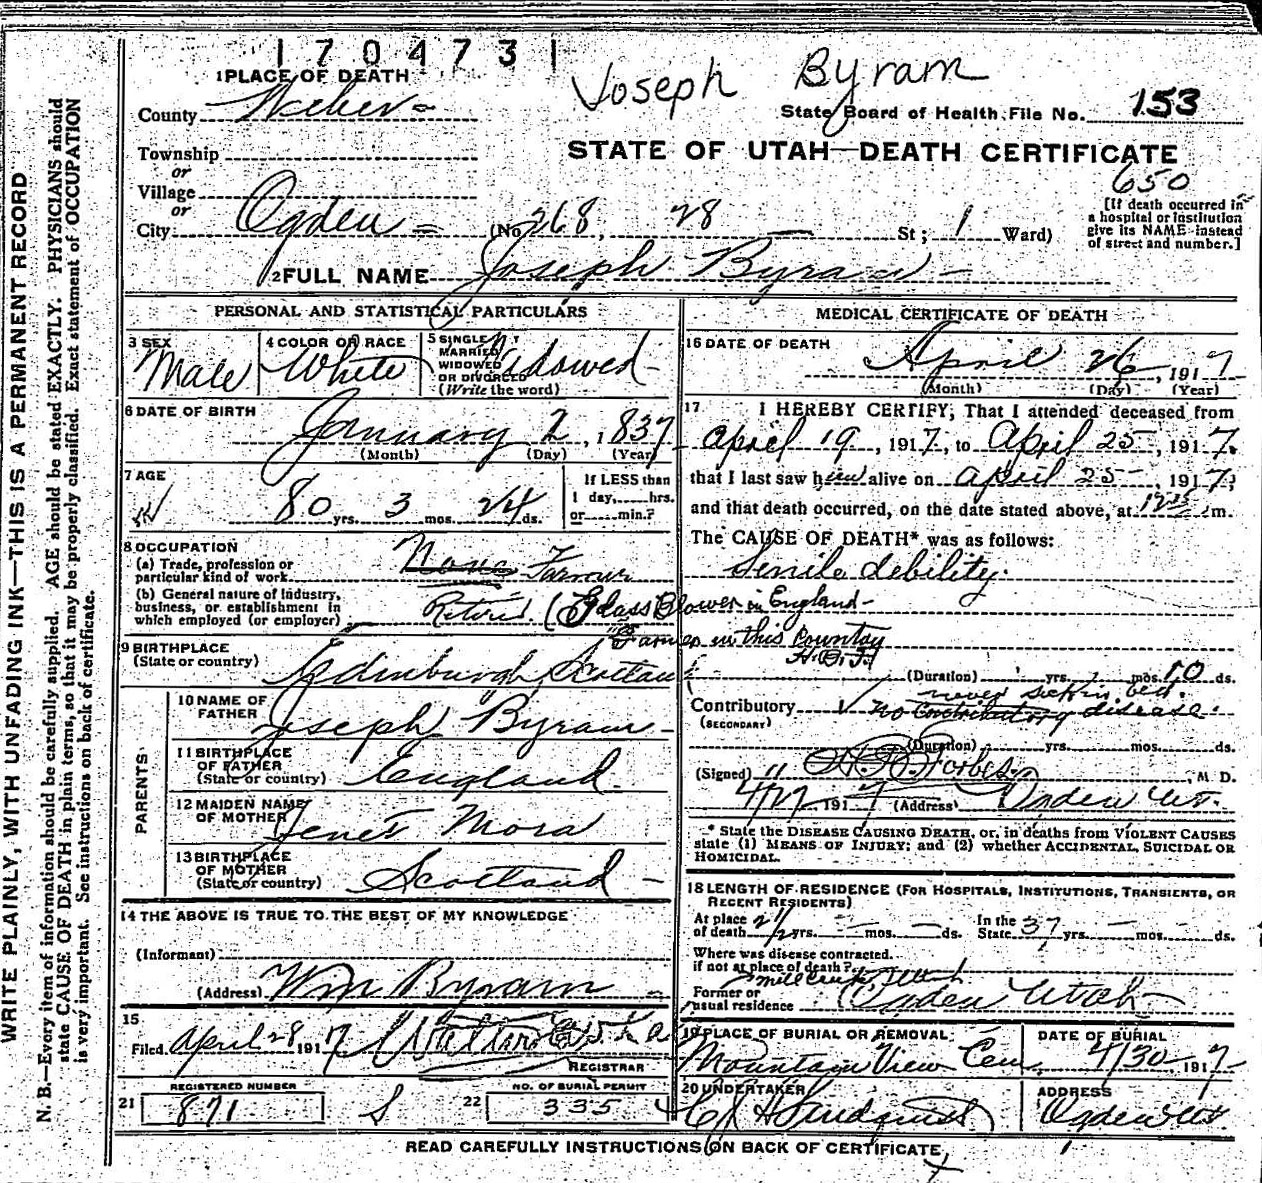 1704731
Joseph Byram
1 PLACE OF DEATH
County Weber
State Board of Health File No. 153
Township
or
Village
or
STATE OF UTAH—DEATH CERTIFICATE
650
City Ogden (No. 268, 28 St; 1 Ward)
[If death occurred in
a hospital or institution
give its NAME instead
of street and number.]
2 FULL NAME Joseph Byram
PERSONAL AND STATISTICAL PARTICULARS
3 SEX
Male
4 COLOR OR RACE
White
5 SINGLE
MARRIED
WIDOWED
OR DIVORCED
(Write the word)
Widowed
6 DATE OF BIRTH
January 2, 1837
(Month) (Day) (Year)
7 AGE
80 yrs. 3 mos. 24 ds.
If LESS than
1 day, hrs.
or min.?
8 OCCUPATION
(a) Trade, profession or
particular kind of work None Farmer
(b) General nature of industry,
business, or establishment in
which employed (or employer) Retired (Glass Blower in England
Farmer in this Country
9 BIRTHPLACE
(State or country) Edinburgh Scotland
PARENTS
10 NAME OF
FATHER Joseph Byram
11 BIRTHPLACE
OF FATHER
(State or country) England
12 MAIDEN NAME
OF MOTHER Jenet Mora
13 BIRTHPLACE
OF MOTHER
(State or country) Scotland
14 THE ABOVE IS TRUE TO THE BEST OF MY KNOWLEDGE
(Informant)
(Address) Wm Byram
15
Filed April 28 1917
REGISTRAR
REGISTERED NUMBER
21 871
S
NO. OF BURIAL PERMIT
22 3354
MEDICAL CERTIFICATE OF DEATH
16 DATE OF DEATH
April 26, 1917
(Month) (Day) (Year)
17 I HEREBY CERTIFY, That I attended deceased from
April 19, 1917, to April 25, 1917,
that I last saw him alive on April 25, 1917,
and that death occurred, on the date stated above, at m.
The CAUSE OF DEATH* was as follows:
Senile debility.
(Duration) yrs. mos. 10 ds.
never sick in bed.
Contributory no contributory disease.
(SECONDARY)
(Duration) yrs. mos. ds.
(Signed) Forbes M D.
4/27 1917 (Address) Ogden Ut.
* State the DISEASE CAUSING DEATH, or, in deaths from VIOLENT CAUSES
state (1) MEANS OF INJURY; and (2) whether ACCIDENTAL, SUICIDAL OR
HOMICIDAL.
18 LENGTH OF RESIDENCE (FOR HOSPITALS, INSTITUTIONS, TRANSIENTS, OR
RECENT RESIDENTS)
At place
of death yrs. mos. ds.
In the
State 37 yrs. mos. ds.
Where was disease contracted.
if not at place of death?
Former or
usual residence Ogden Utah
19 PLACE OF BURIAL OR REMOVAL
Mountain View Cem.
DATE OF BURIAL
4/30 1917
20 UNDERTAKER
ADDRESS
Ogden Ut.
READ CAREFULLY INSTRUCTIONS ON BACK OF CERTIFICATE
WRITE PLAINLY, WITH UNFADING INK—THIS IS A PERMANENT RECORD
N. B.—Every item of information should be carefully supplied. AGE should be stated EXACTLY. PHYSICIANS should
state CAUSE OF DEATH in plain terms, so that it may be properly classified. Exact statement of OCCUPATION
is very important. See instructions on back of certificate.